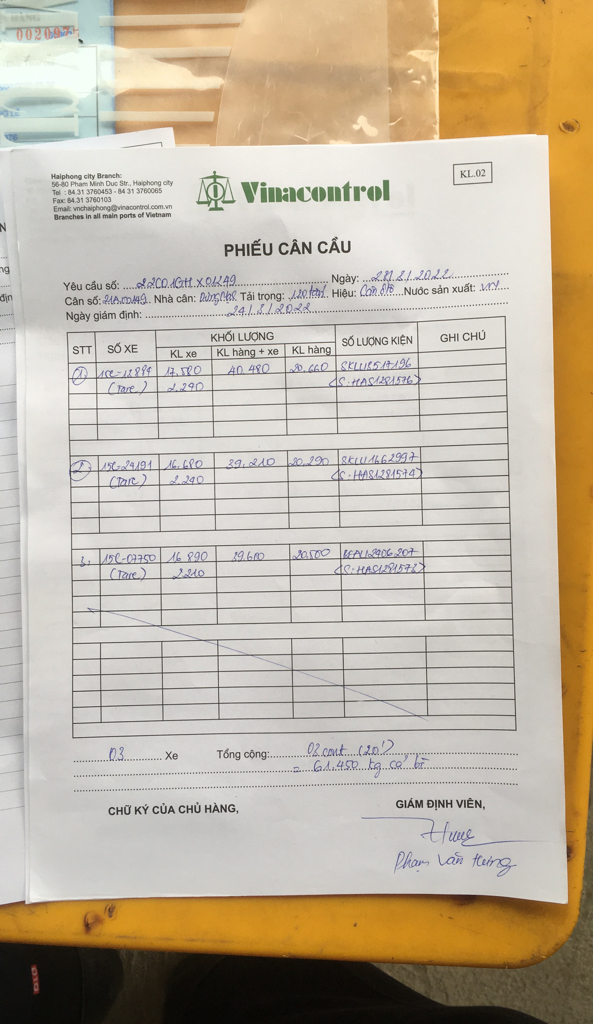 002097
Haiphong city Branch:
56-80 Pham Minh Duc Str., Haiphong city
Tel : 84.31 3760453 - 84 31 3760065
Fax: 84.31 3760103
Email: vnchaiphong@vinacontrol.com.vn
Branches in all main ports of Vietnam
Vinacontrol
KL.02
PHIẾU CÂN CẦU
Yêu cầu số: 22C01GHX01249 Ngày: 28.8.2022
Cân số: Nhà cân: Tải trọng: 120 Hiệu: Nước sản xuất:
Ngày giám định: 29/8/2022
STT SỐ XE KHỐI LƯỢNG SỐ LƯỢNG KIỆN GHI CHÚ
KL xe KL hàng + xe KL hàng
1 15C-12889 17.580 40.480 20.660 SKLU1517196
(Tare) 2.290 (S:HAS1281576)
2 15C-29191 16.680 39.210 20.290 SKLU1662997
(Tare) 2.240 (S:HAS1281574)
3. 15C-07750 16.890 39.610 20.500 BEAU2406207
(Tare) 2.210 (S:HAS1281573)
03 Xe Tổng cộng: 03 cont (20')
= 61.450 kg cả bì
CHỮ KÝ CỦA CHỦ HÀNG, GIÁM ĐỊNH VIÊN,
Phạm Văn Hưng